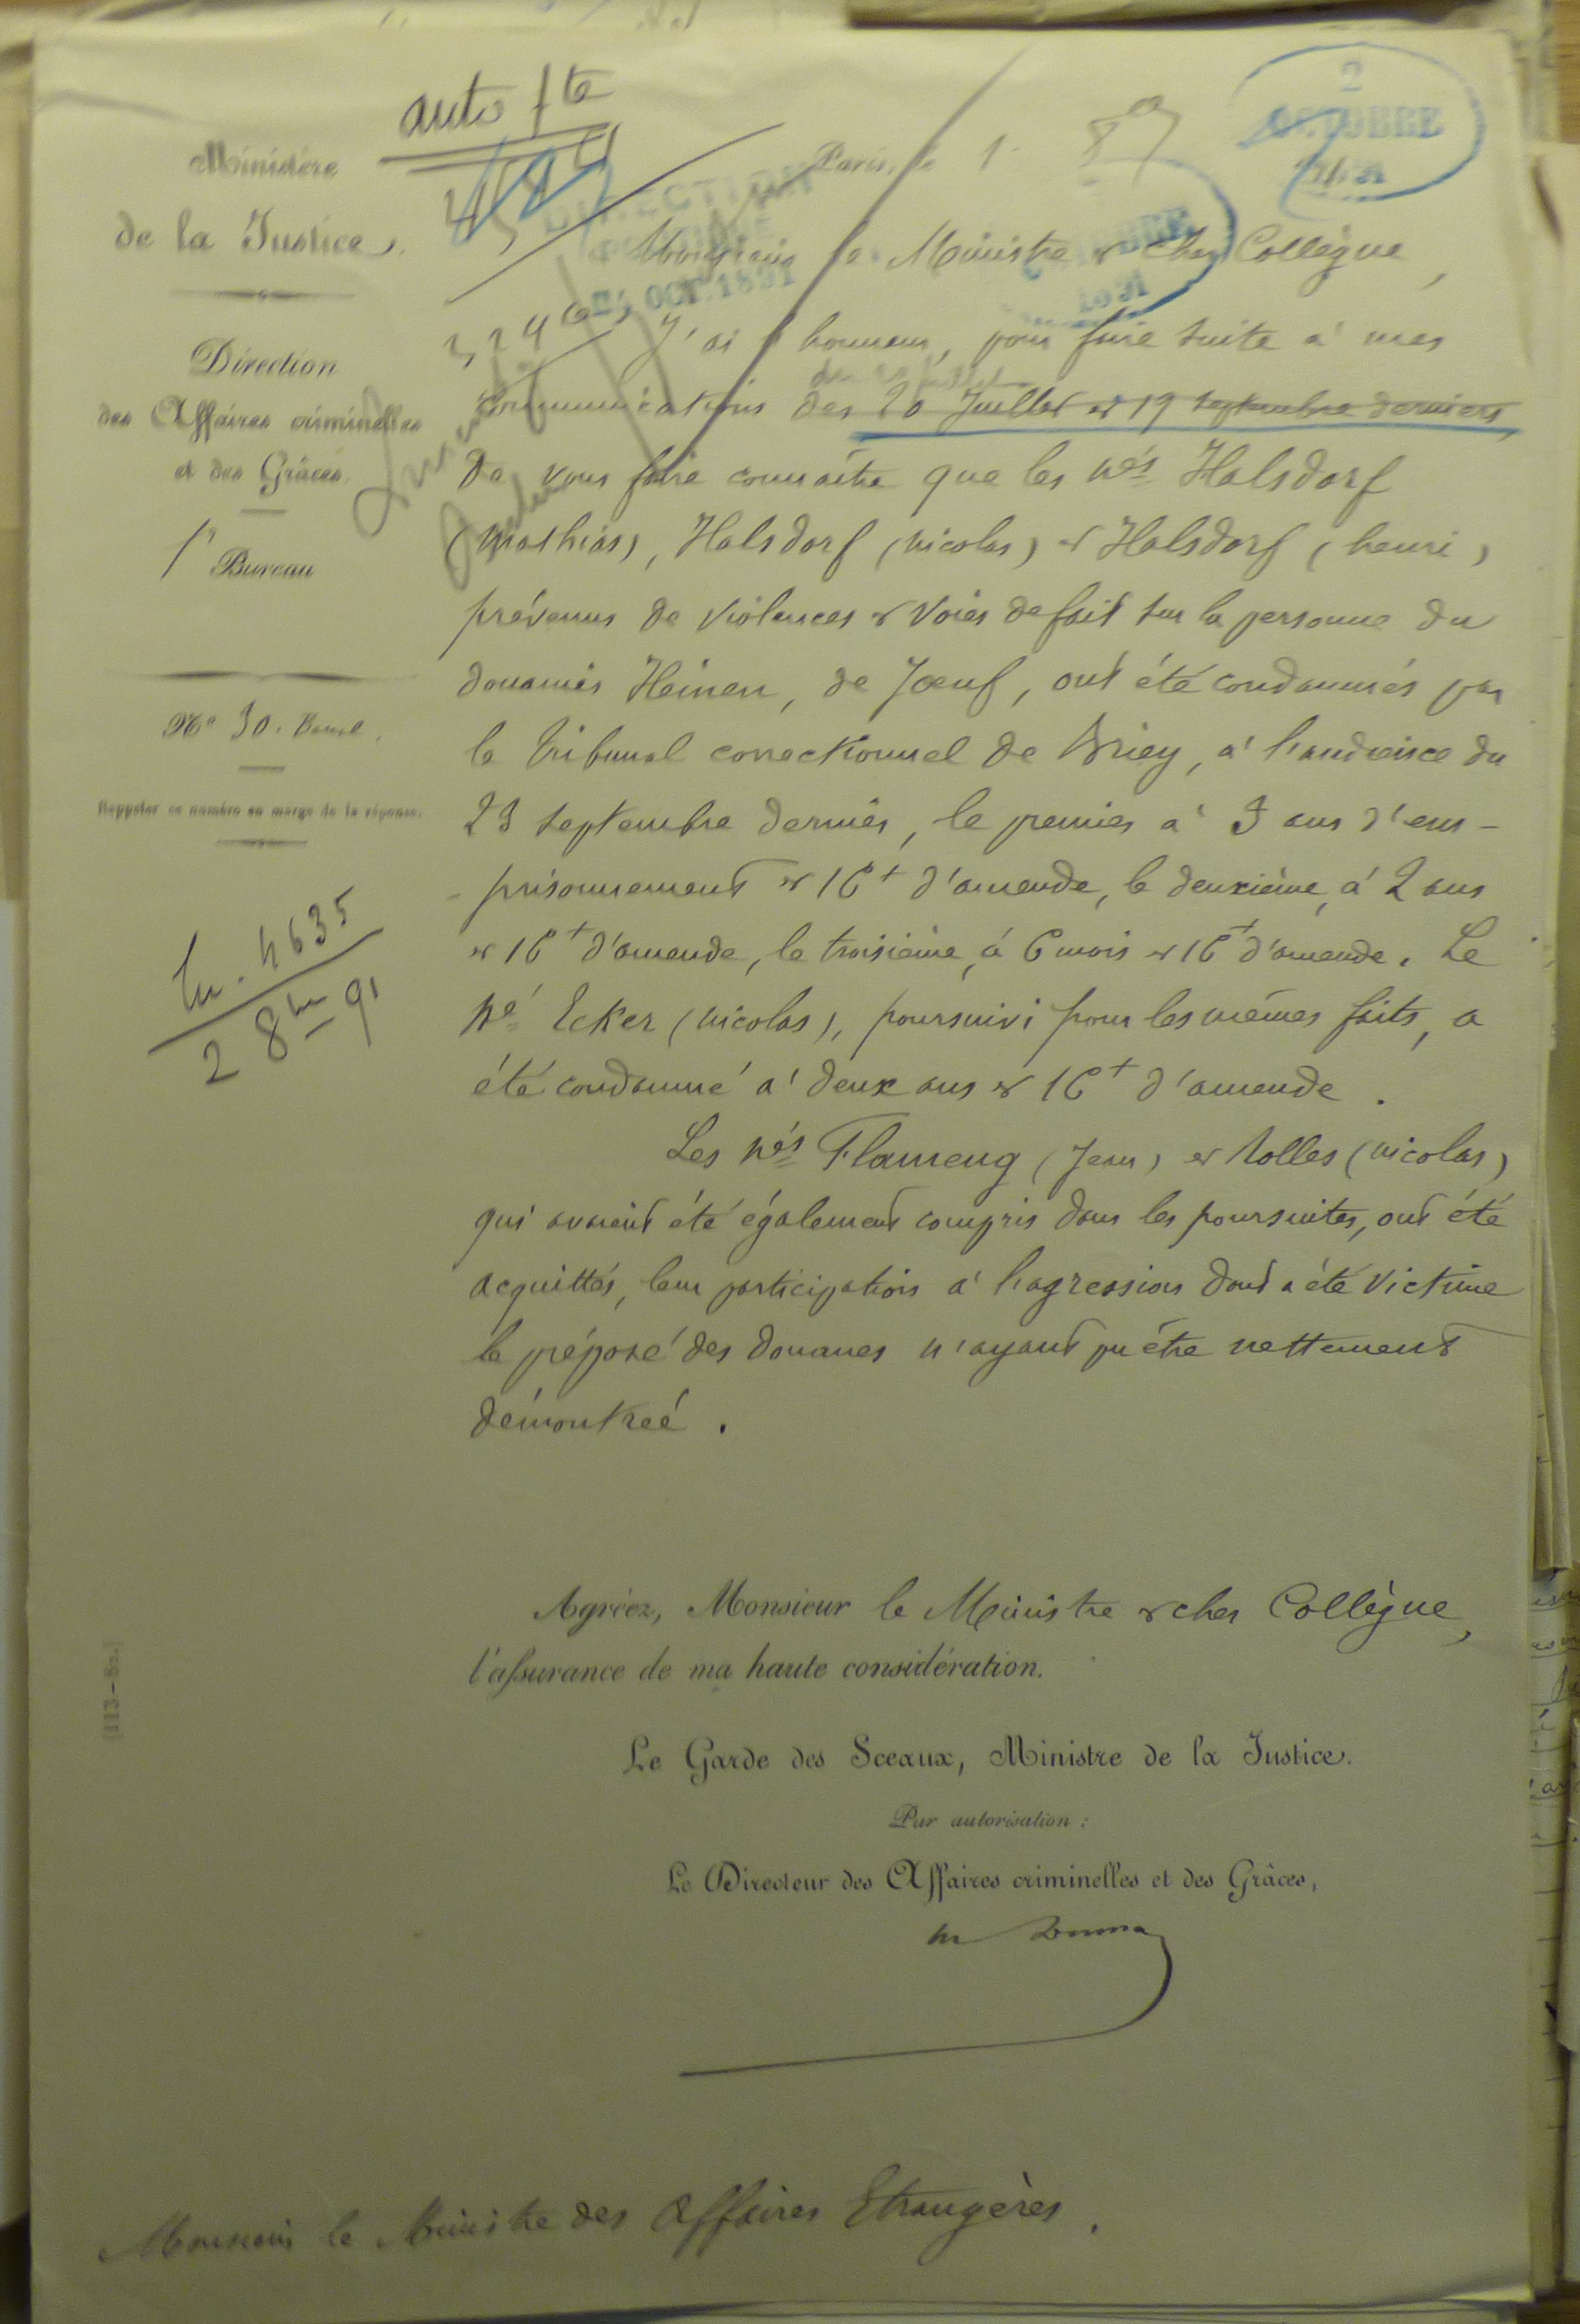 auto fte
Ministère
de la Justice.
Direction
des Affaires criminelles
et des Grâces.
1er Bureau
No 30. Banal.
Rappeler ce numéro en marge de la réponse.
4635
2 8bre 91
2
OCTOBRE
1891
DIRECTION
OCT. 1891
Paris, le 1. 8
Monsieur le Ministre & cher Collègue,
J'ai l'honneur, pour faire suite à mes
communications des 20 Juillet et 19 septembre derniers,
de vous faire connaître que les nés Halsdorf
(Mathias), Halsdorf (Nicolas) et Halsdorf (henri)
prévenus de violences & voies de fait sur la personne du
douanier Heinen, de Jœuf, ont été condamnés par
le Tribunal correctionnel de Briey, à l'audience du
23 septembre dernier, le premier à 3 ans d'em-
-prisonnement & 16f d'amende, le deuxième, à 2 ans
& 16f d'amende, le troisième, à 6 mois & 16f d'amende. Le
né Ecker (Nicolas), poursuivi pour les mêmes faits, a
été condamné à deux ans & 16f d'amende.
Les nés Flameng (Jean) et Nolles (Nicolas)
qui avaient été également compris dans les poursuites, ont été
acquittés, leur participation à l'agression dont a été victime
le préposé des douanes n'ayant pu être nettement
démontrée.
Agréez, Monsieur le Ministre & cher Collègue,
l'assurance de ma haute considération.
Le Garde des Sceaux, Ministre de la Justice.
Par autorisation :
Le Directeur des Affaires criminelles et des Grâces,
Monsieur le Ministre des Affaires Etrangères.